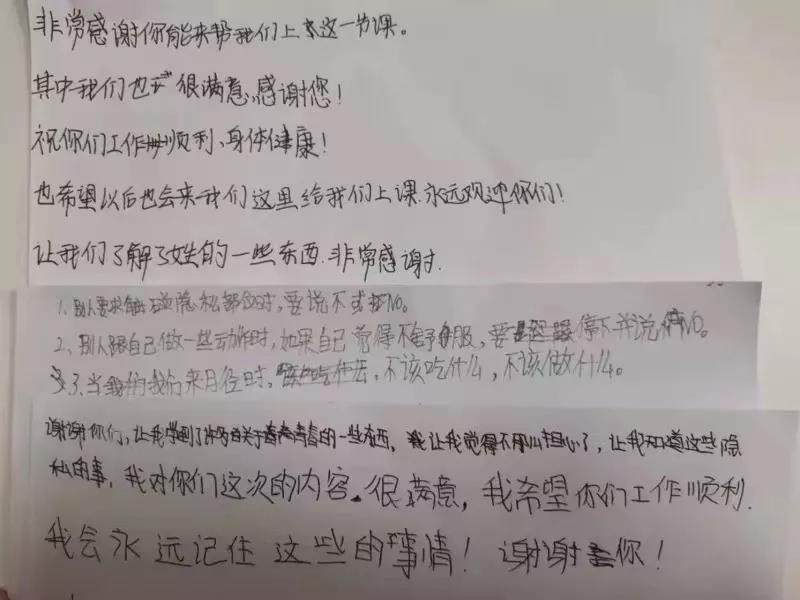 非常感谢你能来帮我们上这一节课。
其中我们也很满意,感谢您!
祝你们工作顺利、身体健康!
也希望以后也会来我们这里给我们上课.永远欢迎你们!
让我们了解了女生的一些东西.非常感谢.
1、别人要求触碰隐私部位时,要说不或NO。
2、别人跟自己做一些动作时,如果自己觉得不舒服,要停下并说NO。
3、当我们来月经时,不该吃什么,不该做什么。
谢谢你们,让我学到了许多关于青春的一些东西,让我觉得不用担心了,让我知道这些隐
私的事,我对你们这次的内容很满意,我希望你们工作顺利.
我会永远记住这些的事情!谢谢你!